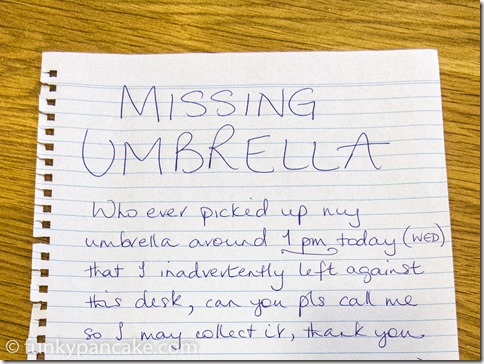 MISSING
UMBRELLA
Who ever picked up my
umbrella around 1 pm today (WED)
that I inadvertently left against
this desk, can you pls call me
so I may collect it, thank you
© funkypancake.com